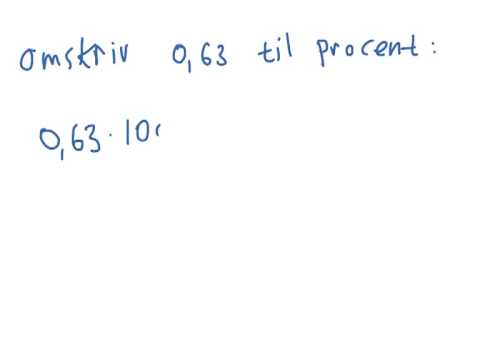 Omskriv 0,63 til procent:
0,63 · 10